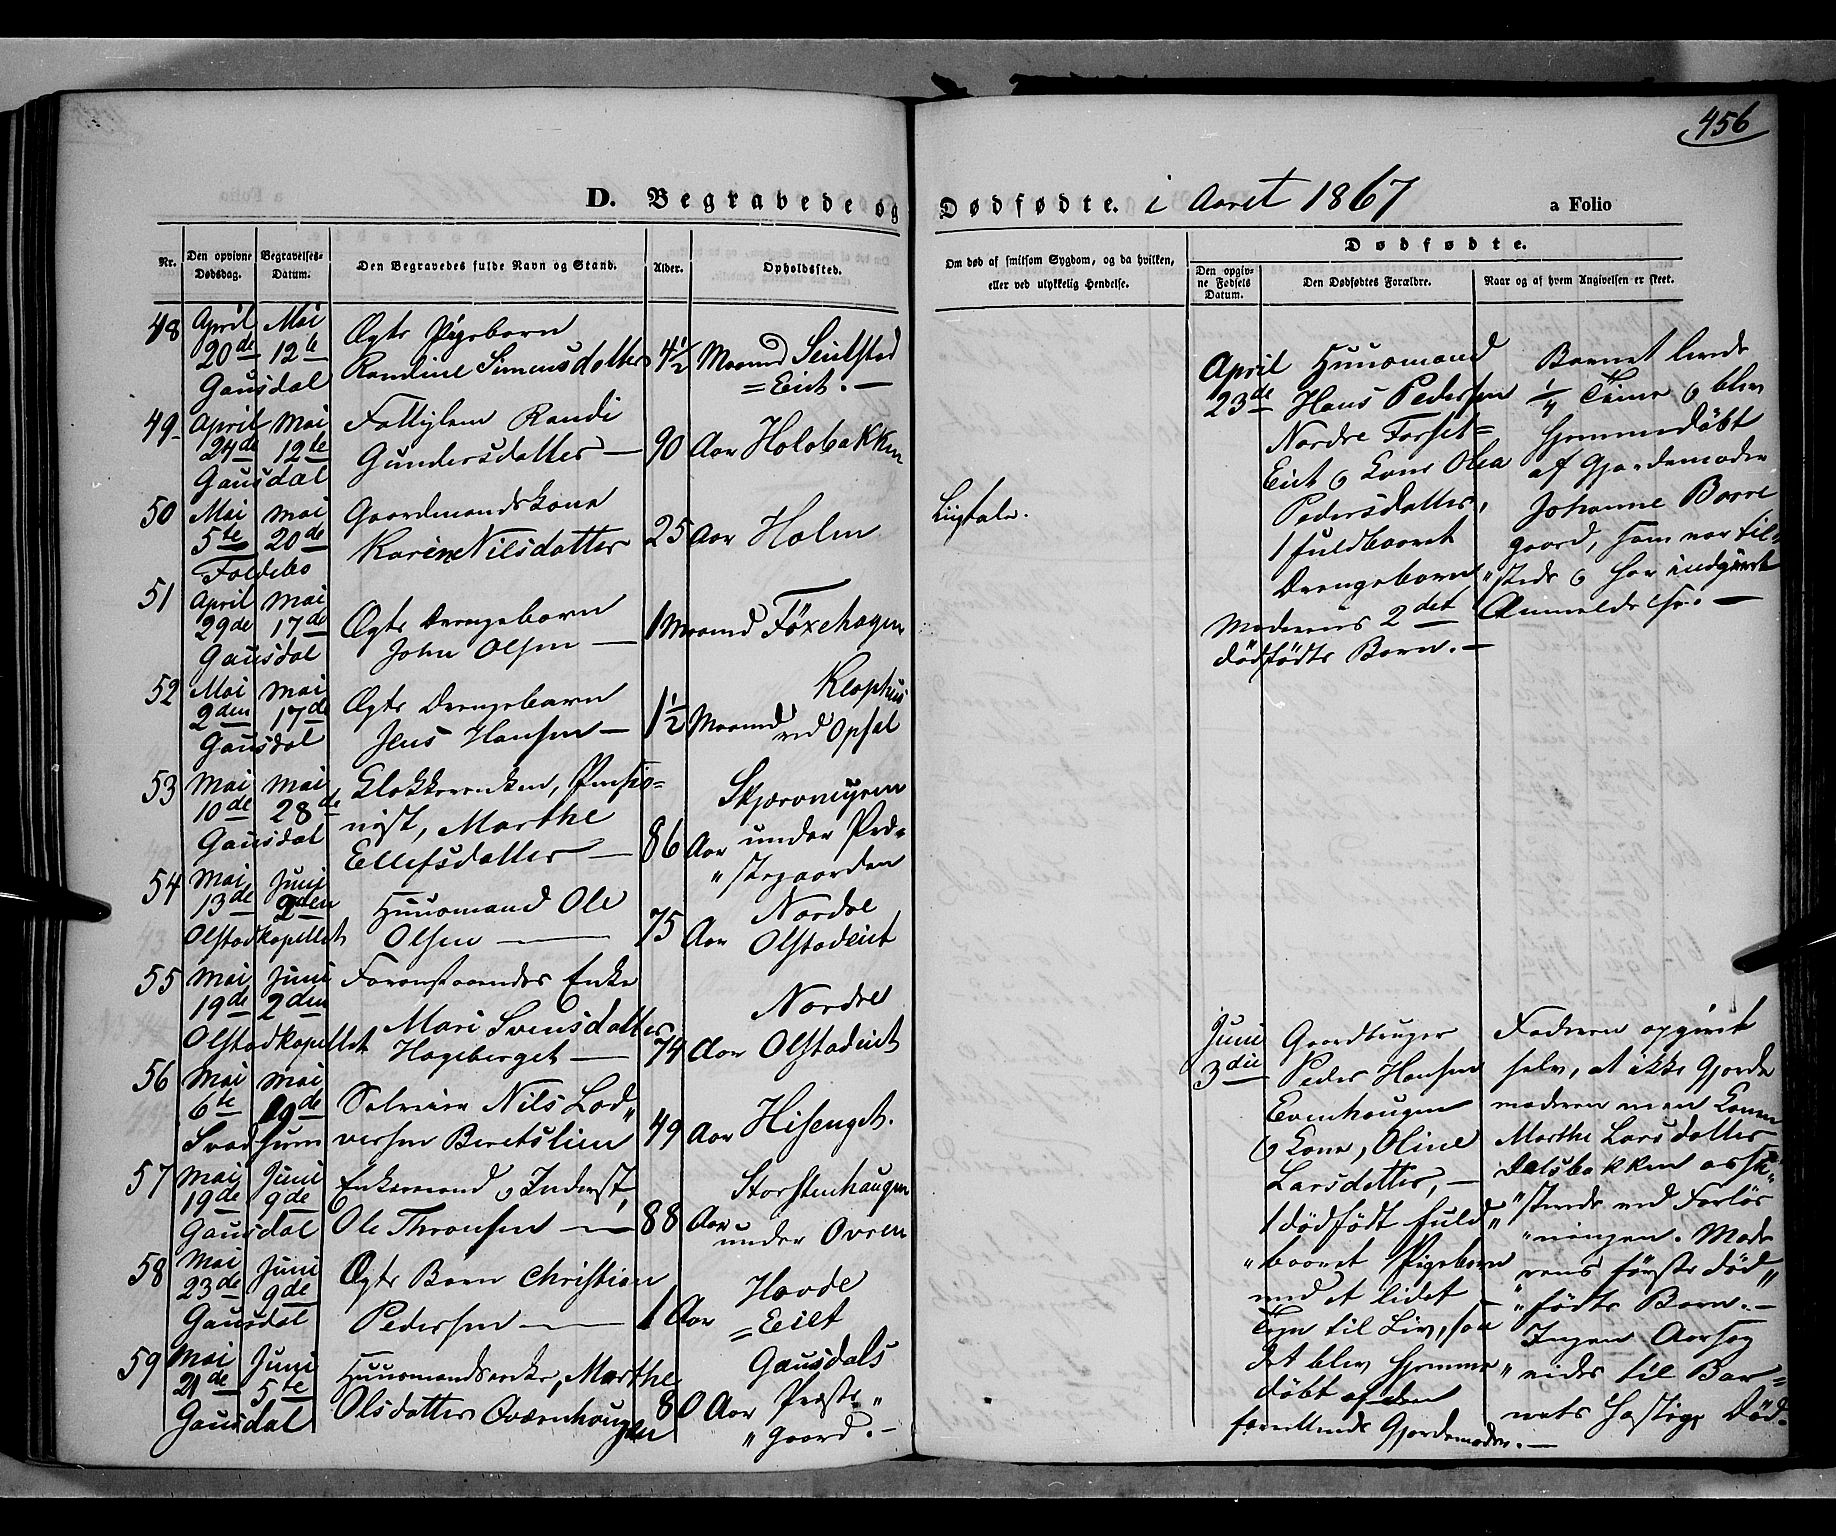 456
D. Begravede og Dødfødte. i Aaret 1867 a Folio
Nr.
Den opgivne Dødsdag.
Begravelses-Datum.
Den Begravedes fulde Navn og Stand.
Alder.
Opholdssted.
Om død af smitsom Sygdom, og da hvilken,
eller ved ulykkelig Hendelse.
Dødfødte.
Den opgivne Fødsels Datum.
Den Dødfødtes Forældre.
Naar og af hvem Angivelsen er skeet.
48 April Mai Ægte Pigebarn
20de 12te Randine Simensdatter 4½ Maaned
Gausdal = Eiet. —
49 April Mai Fattiglem Randi
24de 12te Gundersdatter — 90 Aar Holsbakken
Gausdal
50 Mai Mai Gaardmandskone
5te 20de Karine Nilsdatter 25 Aar Holm
51 April Mai Ægte Drengebarn
29de 17de John Olsen — 1 Maaned
Gausdal
52 Mai Mai Ægte Drengebarn
2den 17de Jens Hansen — 1½ Maaned ved Opsal
Gausdal
53 Mai Mai Klokkerenken, Pensio=
10de 28de nist, Marthe
Gausdal Ellefsdatter — 86 Aar under Præ„
„stegaarden
54 Mai Juni Huusmand Ole Nordre
13de 2den Olsen — 75 Aar Olstadeiet
Olstadkapellet
55 Mai Juni Foranstaaendes Enke Nordre
19de 2den Mari Svensdatter
Olstadkapellet Hageberget — 74 Aar Olstadeiet
56 Mai Mai Nils Lod„
6te 19de versen Beretslien 49 Aar Hisenget.
Svadsum
57 Mai Juni Enkemand o Inderst, Storstenhaugen
19de 9de Ole Thronsen — 88 Aar under Ovren
Gausdal
58 Mai Juni Ægte Barn Christian Hovde
23de 9de Pedersen — 1 Aar = Eiet
Gausdal
59 Mai Juni Huusmandsenke, Marthe Gausdals
21de 5te Olsdatter Qværnhaugen 80 Aar Præste„
Gausdal „gaard. —
April Huusmand
23de Hans Pedersen
Nordre Forset=
Eiet o Kone Olea
Pedersdatter,
1 fuldbaaret
Drengebarn
Moderens 2det
dødfødte Barn. —
Barnet levede
¼ Time o blev
hjemmedøbt
af Gjordemoder
Johanne Borre
gaard, som var til„
„stede o har indgivet
Anmeldelse. —
Juni Gaardbruger
3die Peder Hansen
Evenhaugen
o Kone, Oline
Larsdatter, —
1 dødfødt fuld„
„baaret Pigebarn
med et lidet
Tegn til Liv, saa
det blev hjemme
døbt af den
Gjordemoder. —
Faderen opgivet
selv, at ikke Gjorde
moderen men Konen
Marthe Larsdatter
Dalsbakken assi„
„sterede ved Forløs
„ningen. Mode
rens første død„
„fødte Barn. —
Ingen Aarsag
vides til Bar=
nets hastige Død.